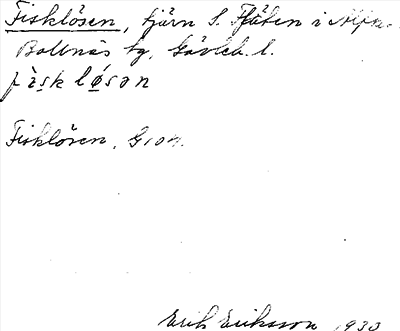 Fisklösen, tjärn S. Fjäten i Alfta.
Bollnäs tg, Gävleb. l.
fìsk lø̀sən
Fisklösen, G101.
Erik Eriksson 1933